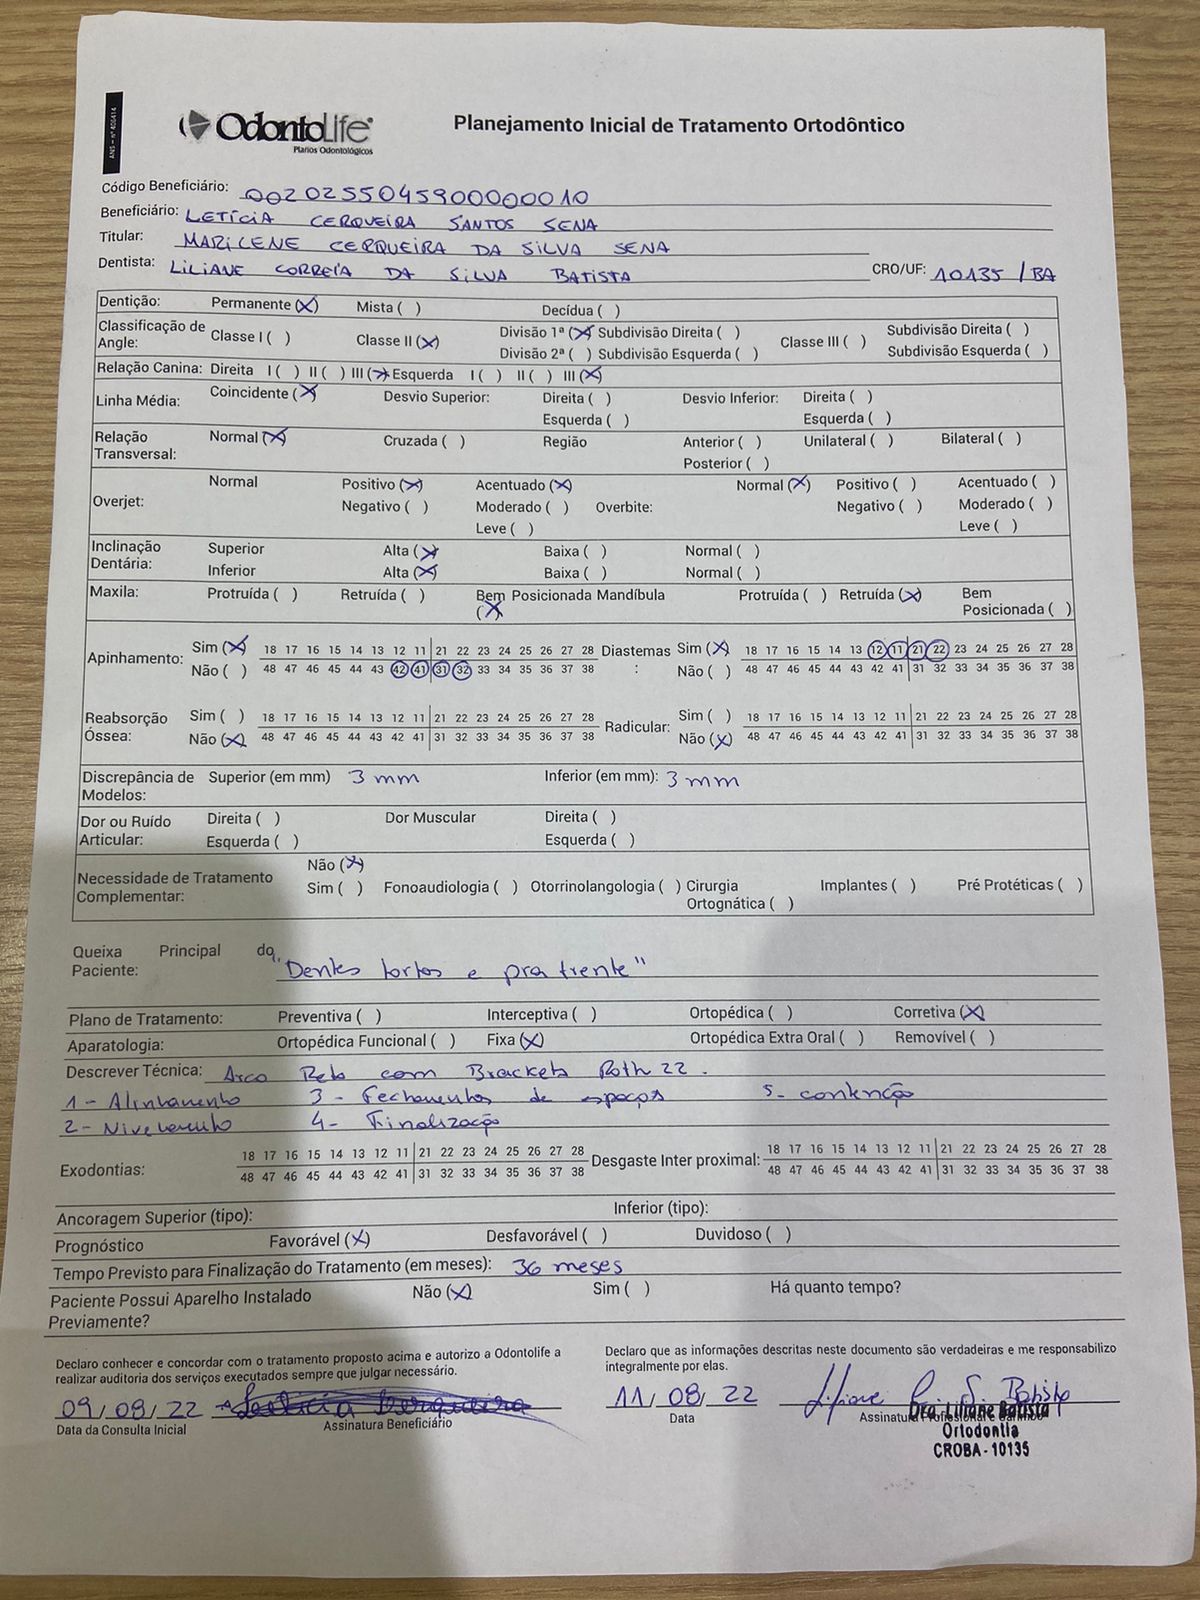 ANS - nº 406414
OdontoLife
Planos Odontológicos
Planejamento Inicial de Tratamento Ortodôntico
Código Beneficiário: 0020255045900000010
Beneficiário: LETÍCIA CERQUEIRA SANTOS SENA
Titular: MARILENE CERQUEIRA DA SILVA SENA
Dentista: LILIANE CORREIA DA SILVA BATISTA CRO/UF: 10135 / BA
Dentição: Permanente (X) Mista ( ) Decídua ( )
Classificação de Angle: Classe I ( ) Classe II (X) Divisão 1ª (X) Subdivisão Direita ( ) Classe III ( ) Subdivisão Direita ( )
Divisão 2ª ( ) Subdivisão Esquerda ( ) Subdivisão Esquerda ( )
Relação Canina: Direita I ( ) II ( ) III (X) Esquerda I ( ) II ( ) III (X)
Linha Média: Coincidente (X) Desvio Superior: Direita ( ) Desvio Inferior: Direita ( )
Esquerda ( ) Esquerda ( )
Relação Transversal: Normal (X) Cruzada ( ) Região Anterior ( ) Unilateral ( ) Bilateral ( )
Posterior ( )
Overjet: Normal Positivo (X) Acentuado (X) Overbite: Normal (X) Positivo ( ) Acentuado ( )
Negativo ( ) Moderado ( ) Negativo ( ) Moderado ( )
Leve ( ) Leve ( )
Inclinação Dentária: Superior Alta (X) Baixa ( ) Normal ( )
Inferior Alta (X) Baixa ( ) Normal ( )
Maxila: Protruída ( ) Retruída ( ) Bem Posicionada (X) Mandíbula Protruída ( ) Retruída (X) Bem Posicionada ( )
Apinhamento: Sim (X) 18 17 16 15 14 13 12 11 21 22 23 24 25 26 27 28 Diastemas : Sim (X) 18 17 16 15 14 13 12 11 21 22 23 24 25 26 27 28
Não ( ) 48 47 46 45 44 43 42 41 31 32 33 34 35 36 37 38 Não ( ) 48 47 46 45 44 43 42 41 31 32 33 34 35 36 37 38
Reabsorção Óssea: Sim ( ) 18 17 16 15 14 13 12 11 21 22 23 24 25 26 27 28 Radicular: Sim ( ) 18 17 16 15 14 13 12 11 21 22 23 24 25 26 27 28
Não (X) 48 47 46 45 44 43 42 41 31 32 33 34 35 36 37 38 Não (X) 48 47 46 45 44 43 42 41 31 32 33 34 35 36 37 38
Discrepância de Modelos: Superior (em mm) 3 mm Inferior (em mm): 3 mm
Dor ou Ruído Articular: Direita ( ) Dor Muscular Direita ( )
Esquerda ( ) Esquerda ( )
Necessidade de Tratamento Complementar: Não (X)
Sim ( ) Fonoaudiologia ( ) Otorrinolangologia ( ) Cirurgia Ortognática ( ) Implantes ( ) Pré Protéticas ( )
Queixa Principal do Paciente: "Dentes tortos e pra frente"
Plano de Tratamento: Preventiva ( ) Interceptiva ( ) Ortopédica ( ) Corretiva (X)
Aparatologia: Ortopédica Funcional ( ) Fixa (X) Ortopédica Extra Oral ( ) Removível ( )
Descrever Técnica: Arco Reto com Brackets Roth 22.
1 - Alinhamento 3 - Fechamentos de espaços 5 - contenção
2 - Nivelamento 4 - Finalização
Exodontias: 18 17 16 15 14 13 12 11 21 22 23 24 25 26 27 28 Desgaste Inter proximal: 18 17 16 15 14 13 12 11 21 22 23 24 25 26 27 28
48 47 46 45 44 43 42 41 31 32 33 34 35 36 37 38 48 47 46 45 44 43 42 41 31 32 33 34 35 36 37 38
Ancoragem Superior (tipo): Inferior (tipo):
Prognóstico Favorável (X) Desfavorável ( ) Duvidoso ( )
Tempo Previsto para Finalização do Tratamento (em meses): 36 meses
Paciente Possui Aparelho Instalado Previamente? Não (X) Sim ( ) Há quanto tempo?
Declaro conhecer e concordar com o tratamento proposto acima e autorizo a Odontolife a
realizar auditoria dos serviços executados sempre que julgar necessário.
Declaro que as informações descritas neste documento são verdadeiras e me responsabilizo
integralmente por elas.
09/08/22 Letícia Cerqueira 11/08/22 Liliane C. S. Batista
Data da Consulta Inicial Assinatura Beneficiário Data Assinatura Profissional e Carimbo
Dra. Liliane Batista
Ortodontia
CROBA - 10135